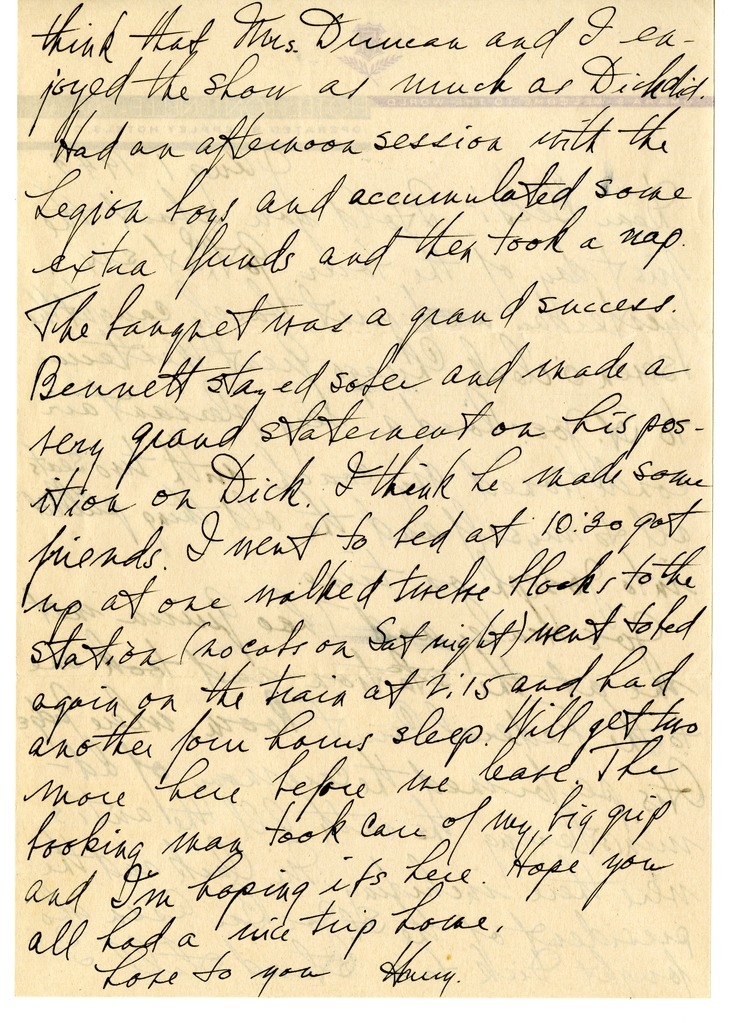 think that Mrs. Duncan and I en-
joyed the show as much as Dick did.
Had an afternoon session with the
Legion boys and accumulated some
extra funds and then took a nap.
The banquet was a grand success.
Bennett stayed sober and made a
very grand statement on his pos-
ition on Dick. I think he made some
friends. I went to bed at 10:30 got
up at one walked twelve blocks to the
station (no cabs on Sat night) went to bed
again on the train at 2:15 and had
another four hours sleep. Will get two
more here before we leave. The
booking man took care of my big grip
and I'm hoping it's here. Hope you
all had a nice trip home.
Love to you Harry.